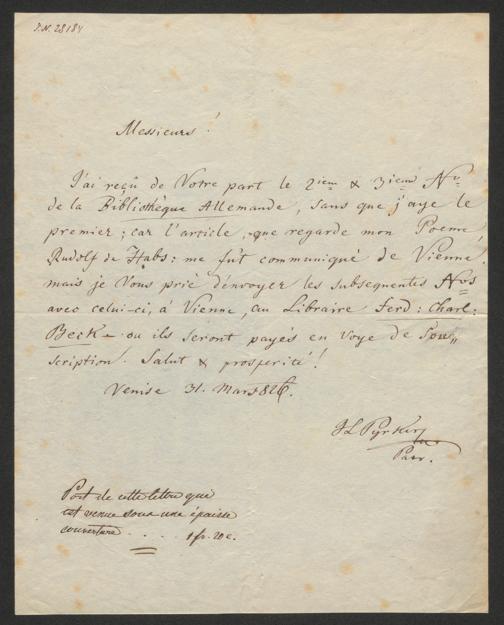 J.N. 28184
Messieurs!
J'ai reçu de Votre part le 2iem & 3iem No
de la Bibliothèque Allemande, sans que j'aye le
premier; car l'article, que regarde mon Poeme
Rudolf de Habs: me fut communiqué de Vienne.
mais je Vous prie d'envoyer les subsequentes Nos
avec celui-ci, à Vienne, au Libraire Ferd: Charl:
Beck – ou ils seront payés en voye de Sou„
scription. Salut & prosperité!
Venise 31. Mars 826.
JL Pyrker
Patr.
Port de cette lettre que
est venue sous une épaisse
couverture . . . . 1 fr. 20 c.